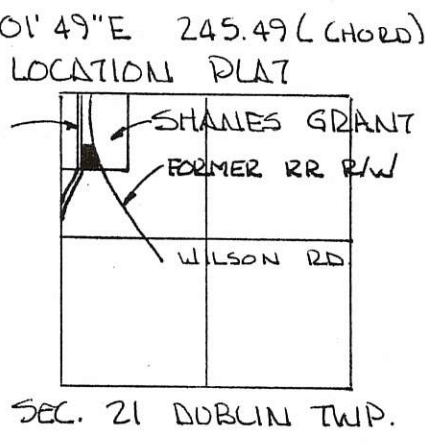 01'49"E 245.49 (CHORD)
LOCATION PLAT
SHANES GRANT
FORMER RR R/W
WILSON RD
SEC. 21 DUBLIN TWP.